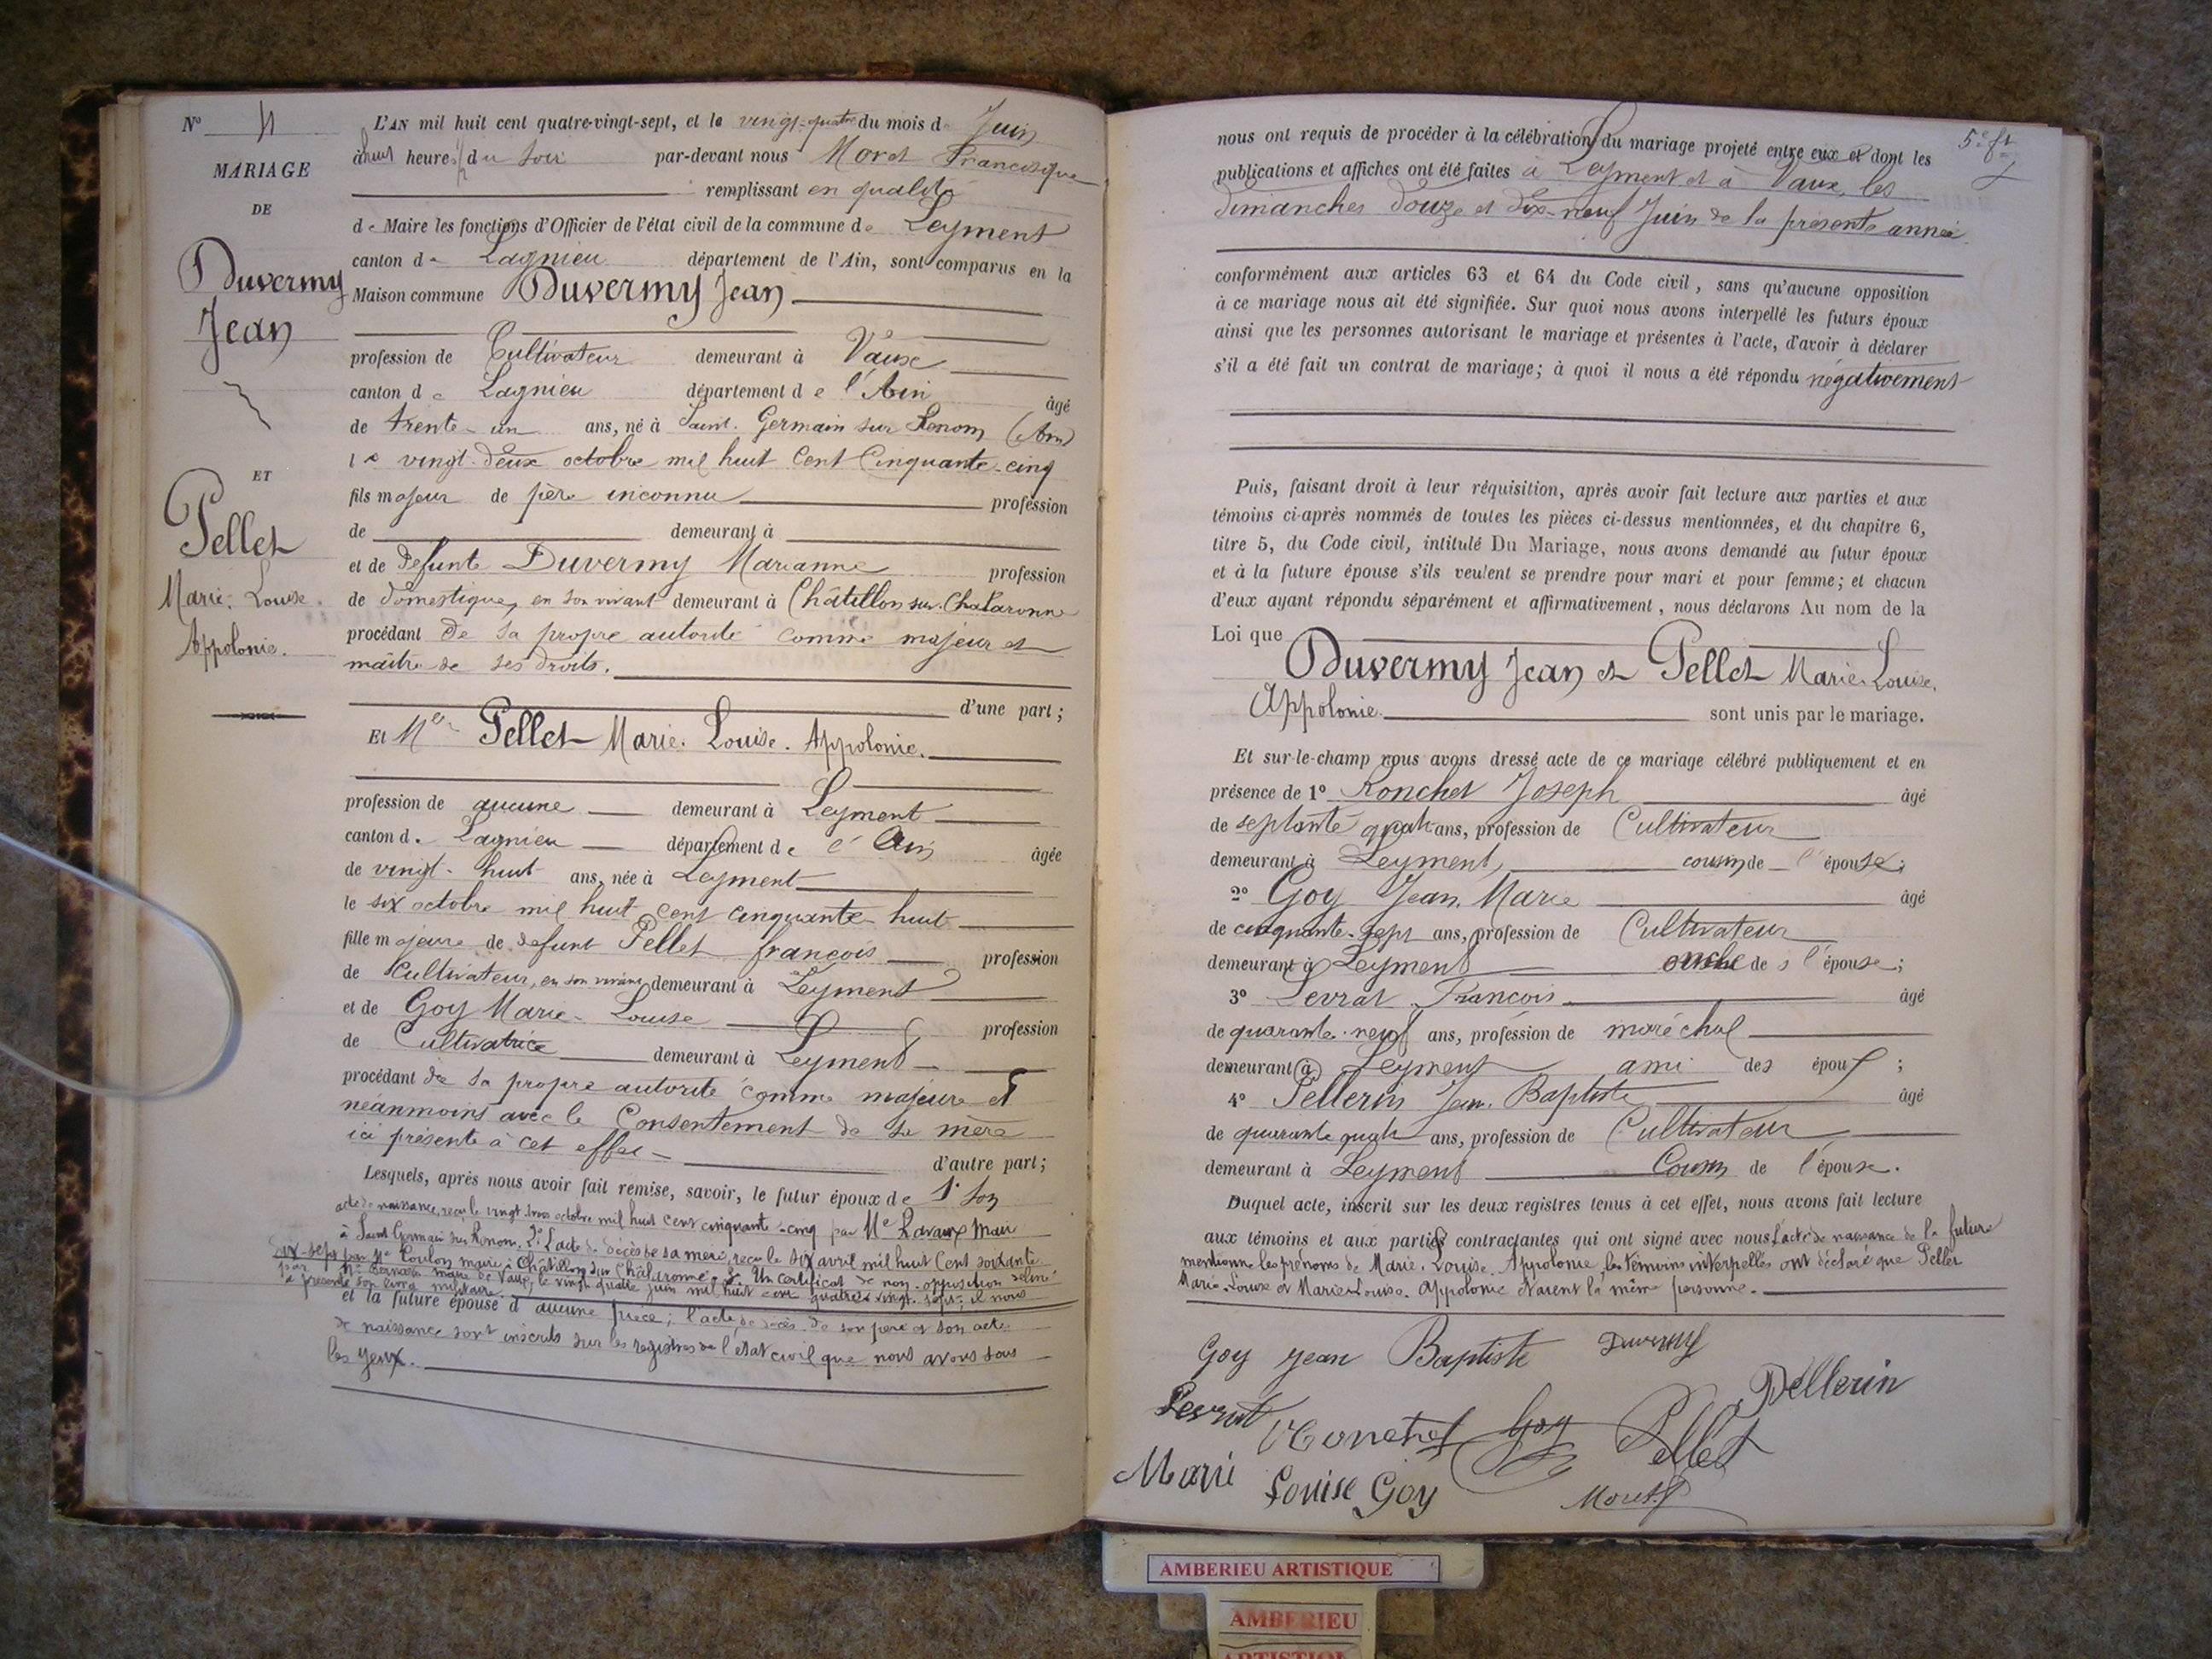 N° 4
MARIAGE
DE
Duvermy
Jean
ET
Pellet
Marie. Louise.
Appolonie.
L'AN mil huit cent quatre-vingt-sept, et le vingt-quatre du mois de Juin
à huit heures du soir par-devant nous Moret Francisque
remplissant en qualité
de Maire les fonctions d'Officier de l'état civil de la commune de Leyment
canton de Lagnieu département de l'Ain, sont comparus en la
Maison commune Duvermy Jean
profession de Cultivateur demeurant à Vaux
canton de Lagnieu département de l'Ain âgé
de trente-un ans, né à Saint-Germain sur Renom (Ain)
le vingt-deux octobre mil huit cent cinquante-cinq
fils majeur de père inconnu profession
de demeurant à
et de défunte Duvermy Marianne profession
de domestique, en son vivant demeurant à Châtillon sur Chalaronne
procédant de sa propre autorité comme majeur et
maître de ses droits.
d'une part;
Et Mlle Pellet Marie. Louise. Appolonie.
profession de aucune demeurant à Leyment
canton de Lagnieu département de l'Ain âgée
de vingt-huit ans, née à Leyment
le six octobre mil huit cent cinquante-huit
fille majeure de defunt Pellet françois profession
de Cultivateur, en son vivant demeurant à Leyment
et de Goy Marie-Louise profession
de Cultivatrice demeurant à Leyment
procédant de sa propre autorité comme majeure et
néanmoins avec le Consentement de sa mère
ici présente à cet effet
d'autre part;
Lesquels, après nous avoir fait remise, savoir, le futur époux de 1° son
acte de naissance, reçu le vingt-trois octobre mil huit cent cinquante-cinq par Me Lavaux Maire
à Saint Germain sur Renom. 2° L'acte de décès de sa mère, reçu le six avril mil huit cent soixante
dix-sept par Me Coulon maire à Châtillon sur Châlaronne. 3° Un certificat de non-opposition délivré
par Me maire de Vaux, le vingt quatre juin mil huit cent quatre-vingt-sept; il nous
a présenté son livret militaire.
et la future épouse d'aucune pièce; l'acte de décès de son père et son acte
de naissance sont inscrits sur les registres de l'état civil que nous avons sous
les yeux.
5e ft
nous ont requis de procéder à la célébration du mariage projeté entre eux et dont les
publications et affiches ont été faites à Leyment et à Vaux, les
dimanches douze et dix-neuf Juin de la présente année
conformément aux articles 63 et 64 du Code civil, sans qu'aucune opposition
à ce mariage nous ait été signifiée. Sur quoi nous avons interpellé les futurs époux
ainsi que les personnes autorisant le mariage et présentes à l'acte, d'avoir à déclarer
s'il a été fait un contrat de mariage; à quoi il nous a été répondu négativement
Puis, faisant droit à leur réquisition, après avoir fait lecture aux parties et aux
témoins ci-après nommés de toutes les pièces ci-dessus mentionnées, et du chapitre 6,
titre 5, du Code civil, intitulé Du Mariage, nous avons demandé au futur époux
et à la future épouse s'ils veulent se prendre pour mari et pour femme; et chacun
d'eux ayant répondu séparément et affirmativement, nous déclarons Au nom de la
Loi que
Duvermy Jean et Pellet Marie-Louise.
Appolonie. sont unis par le mariage.
Et sur-le-champ nous avons dressé acte de ce mariage célébré publiquement et en
présence de 1° Ronchet Joseph âgé
de septante quatre ans, profession de Cultivateur
demeurant à Leyment, cousin de l'épouse;
2° Goy Jean. Marie âgé
de cinquante-sept ans, profession de Cultivateur
demeurant à Leyment oncle de l'épouse;
3° Levrat François âgé
de quarante-neuf ans, profession de maréchal
demeurant à Leyment ami des époux;
4° Pellerin Jean. Baptiste âgé
de quarante quatre ans, profession de Cultivateur
demeurant à Leyment Cousin de l'épouse.
Duquel acte, inscrit sur les deux registres tenus à cet effet, nous avons fait lecture
aux témoins et aux parties contractantes qui ont signé avec nous l'acte de naissance de la future
mentionne les prénoms de Marie. Louise. Appolonie, les témoins interpellés ont déclaré que Pellet
Marie-Louise et Marie-Louise. Appolonie étaient la même personne.
Goy jean Baptiste Duvermy
Pellerin
Levrat Ronchet Goy Pellet
Marie Louise Goy Moret
AMBERIEU ARTISTIQUE
AMBERIEU
ARTISTIQUE